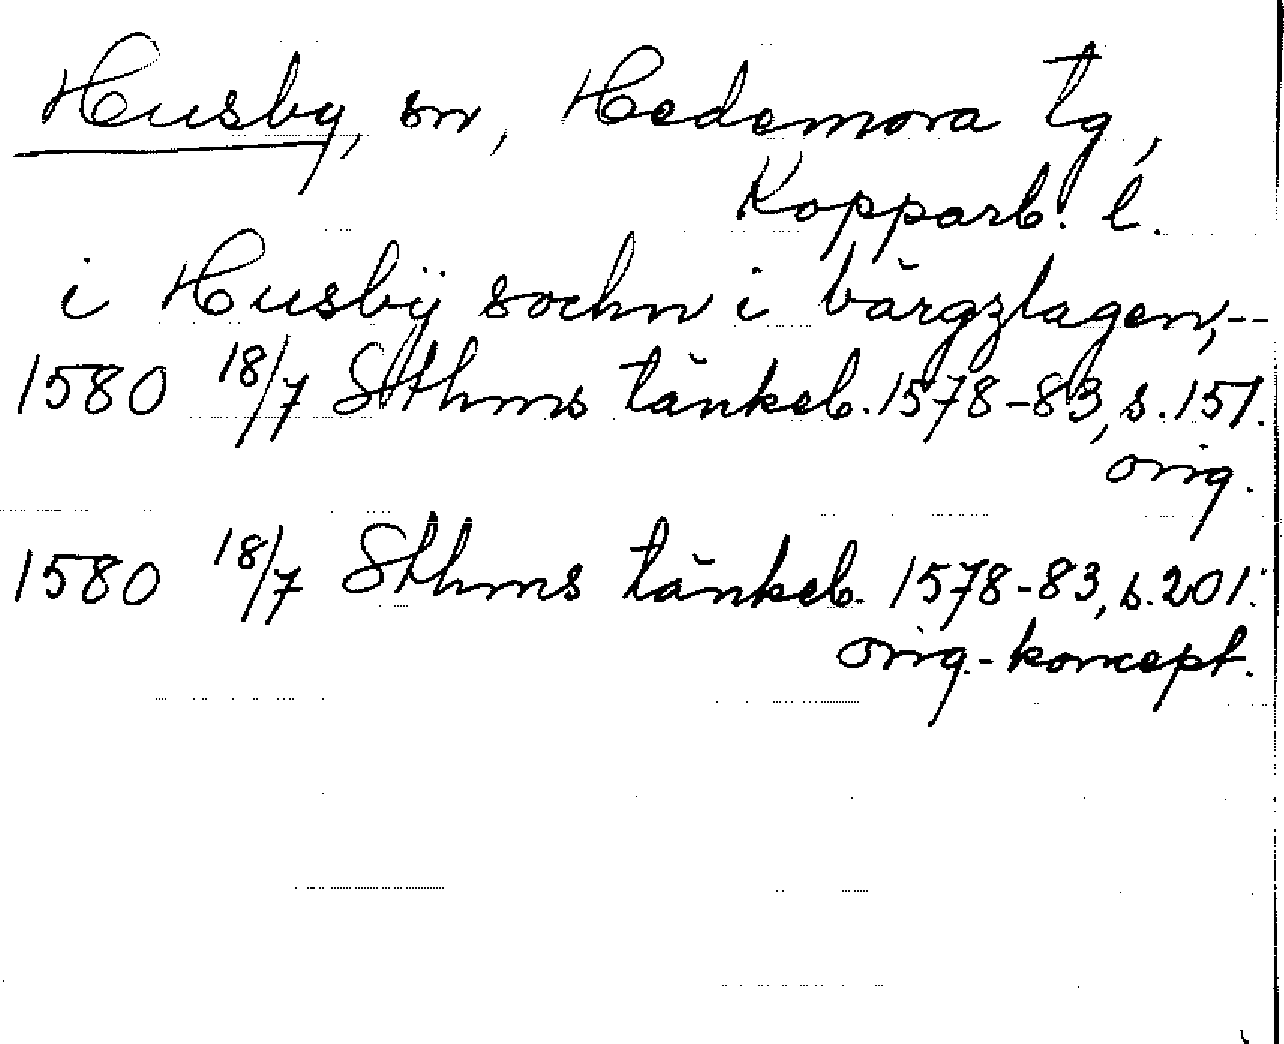 Husby, sn, Hedemora tg,
Kopparb. l.
i Husbÿ sochn i bärgzlagen,--
1580 18/7 Sthms tänkeb. 1578-83, s. 151.
orig.
1580 18/7 Sthms tänkeb. 1578-83, s. 201.
orig.-koncept.